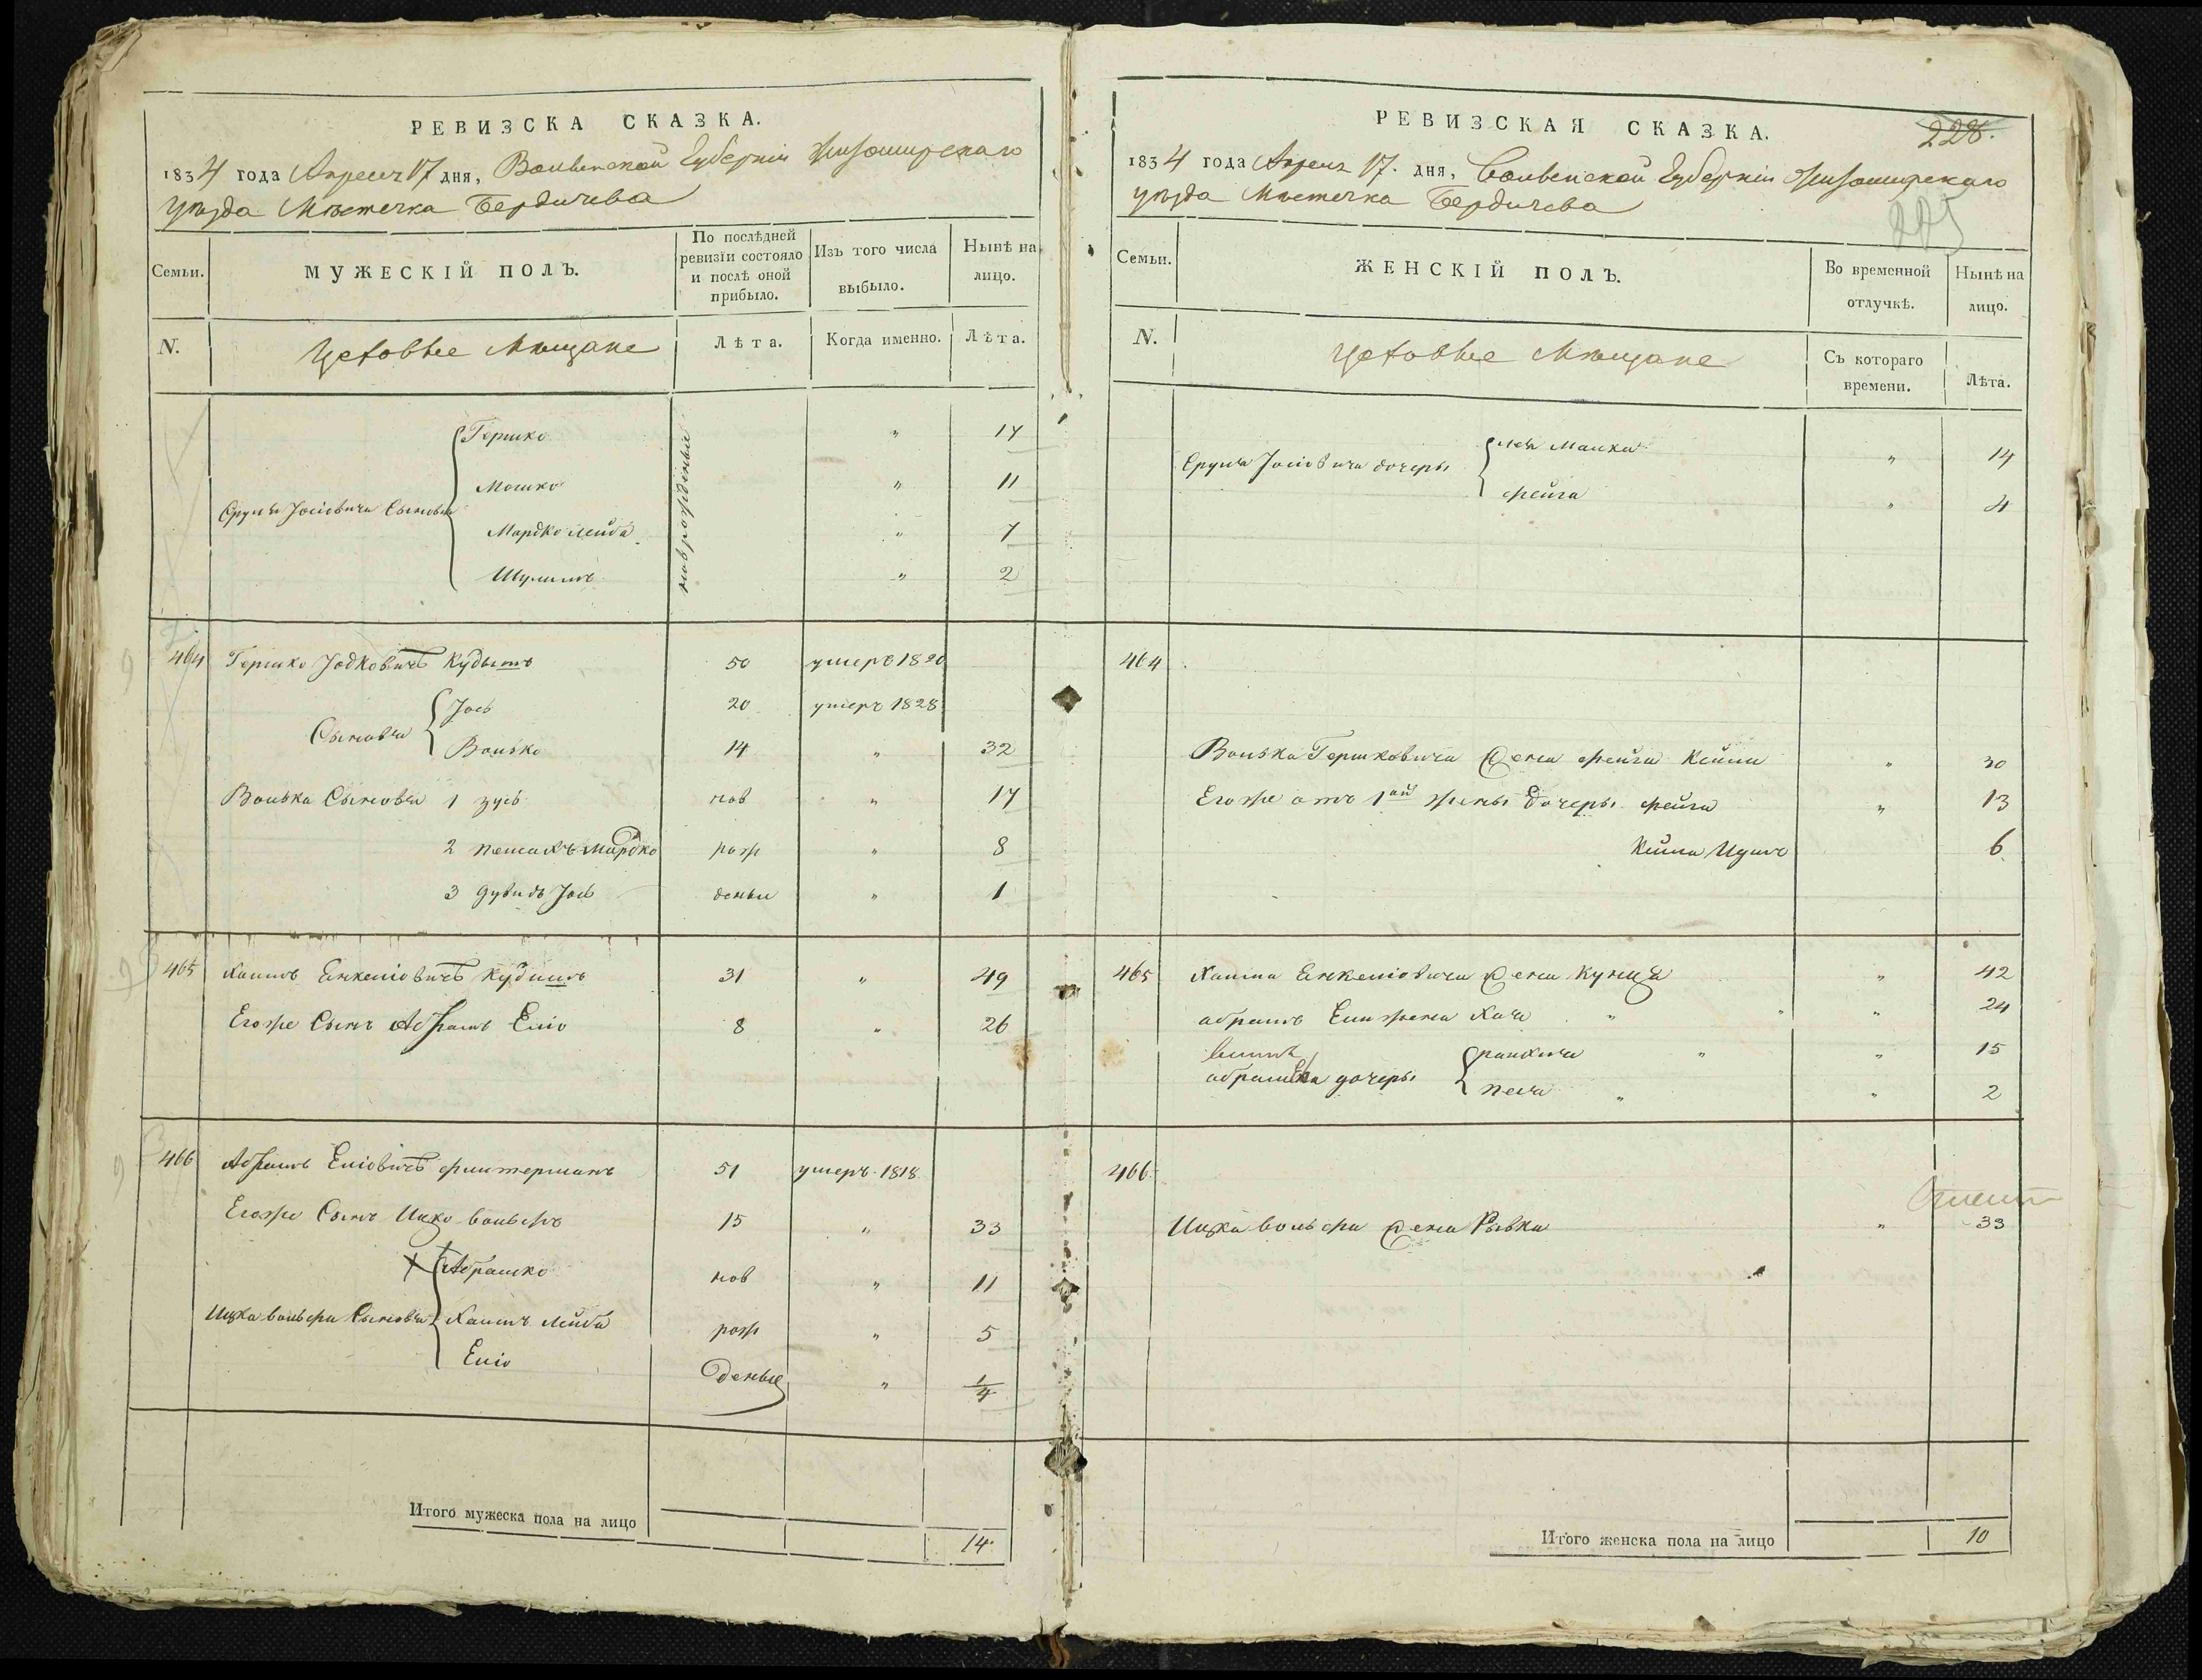 РЕВИЗСКА СКАЗКА.
1834 года Апреля 17 дня, Волынской Губернiи Житомирскаго
уѣзда Мѣстечка Бердичева
Семьи.
МУЖЕСКІЙ ПОЛЪ.
По послѣдней
ревизіи состояло
и послѣ оной
прибыло.
Изъ того числа
выбыло.
Нынѣ на
лицо.
N.
Цеховые Мѣщане
Лѣта.
Когда именно.
Лѣта.
Гершко " 17
Мошко " 11
Сруля Іосiовича Сыновья
Мордко Лейба " 7
Шулимъ " 2
новорожденные
464 Гершко Іодковичъ Кудышъ 50 умеръ 1820
Іось 20 умеръ 1828
Сыновья
Волько 14 " 32
Волька Сыновья 1 Зусь нов " 17
2 Пейсахъ Мордко рож " 8
3 Дувидъ Іось деные " 1
465 Хаимъ Янкелiовичъ Кудишъ 31 " 49
Егоже Сынъ Абрамъ Елiо 8 " 26
466 Абрамъ Елiовичъ Фингерманъ 51 умеръ 1818
Егоже Сынъ Ицко Вольфъ 15 " 33
Абрамко нов " 11
Ицка Вольфа Сыновья Хаимъ Лейба рож " 5
Елiо деные " 1/4
Итого мужеска пола на лицо
14
РЕВИЗСКАЯ СКАЗКА.
228.
1834 года Апреля 17. дня, Волынской Губернiи Житомирскаго
уѣзда Мѣстечка Бердичева
225
Семьи.
ЖЕНСКІЙ ПОЛЪ.
Во временной
отлучкѣ.
Нынѣ на
лицо.
N.
Цеховые Мѣщане
Съ котораго
времени.
Лѣта.
Сруля Іосiовича дочеры
Лея Малка " 14
Фейга " 4
464
Волька Гершковича Жена Фейга Кейла " 30
Егоже отъ 1ой жены дочеры Фейга " 13
Кейла 6
465 Хаима Янкелiовича Жена Куница " 42
Абрамъ Елiи жена Хая " " " 24
" " 15
Абрамка дочеры Песя " " 2
466
Ицка Вольфа Жена Рывка " 33
Итого женска пола на лицо
10